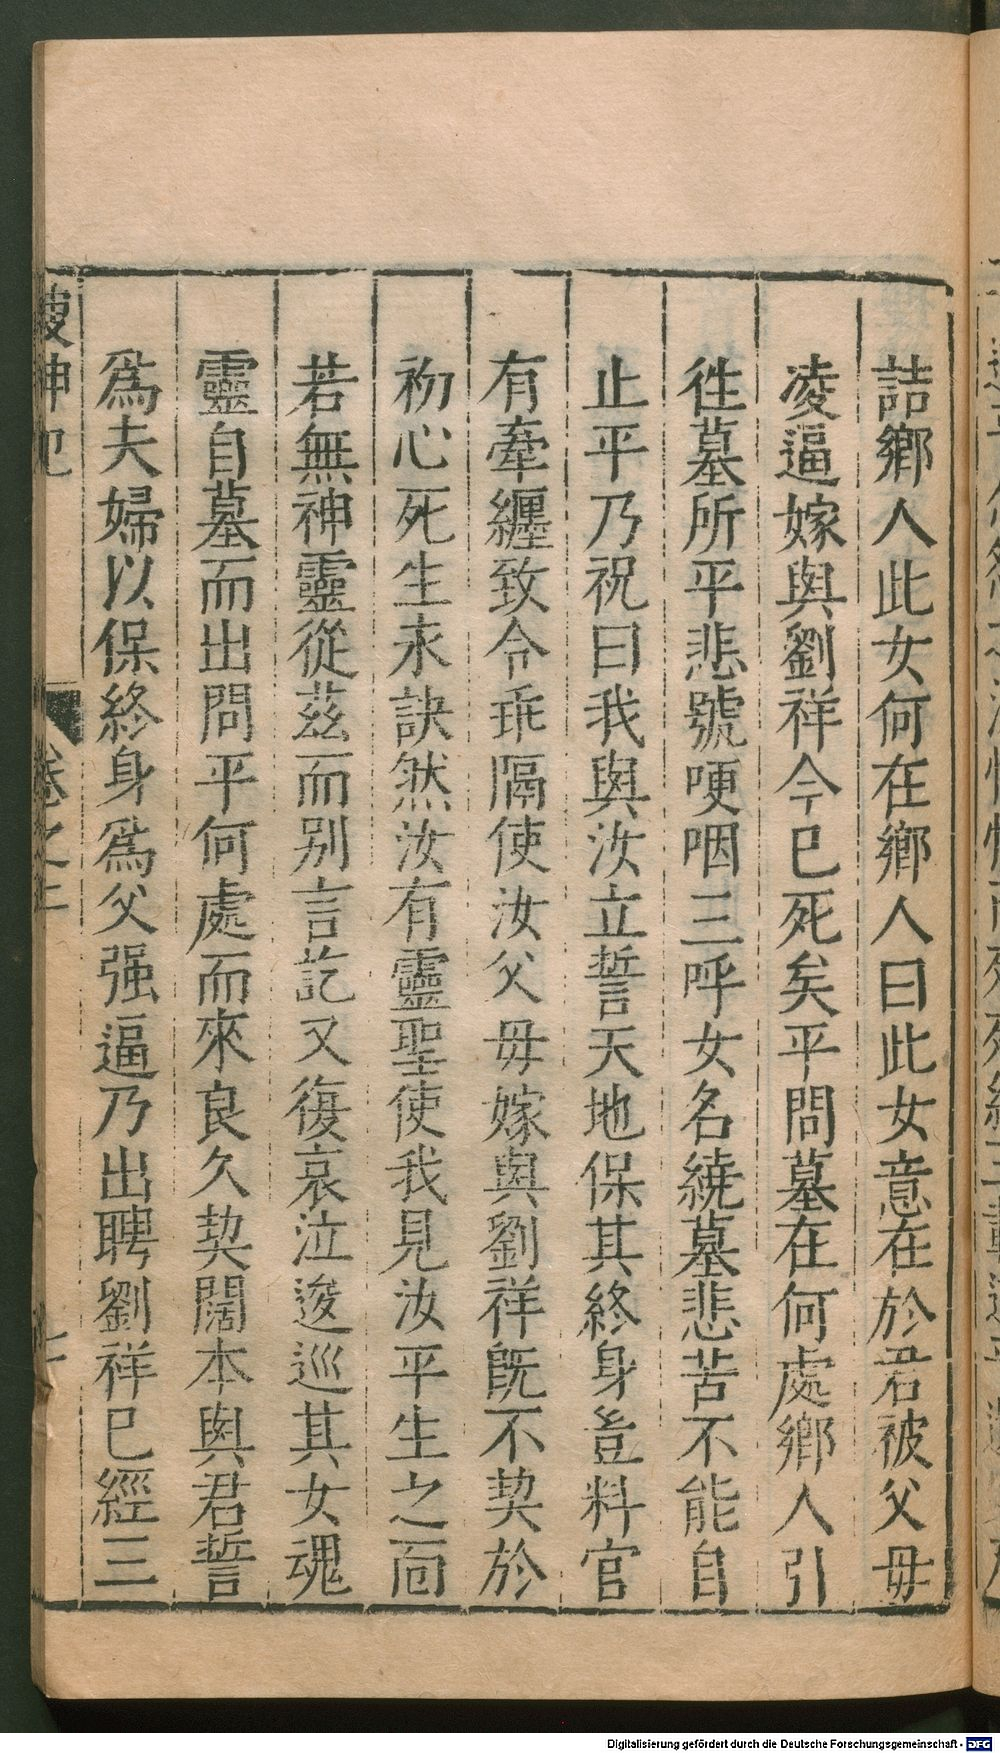 詰鄉人此女何在鄉人曰此女意在於君被父毋
凌逼嫁與劉祥今巳死矣平問墓在何處鄉人引
徃墓所平悲號哽咽三呼女名繞墓悲苦不能自
止平乃祝曰我與汝立誓天地保其終身豈料官
有牽纏致令乖隔使汝父毋嫁與劉祥旣不契於
初心死生永訣然汝有靈聖使我見汝平生之面
若無神靈從茲而別言訖又復哀泣逡巡其女魂
靈自墓而出問平何處而來良久契闊本與君誓
爲夫婦以保終身爲父强逼乃出聘劉祥巳經三
搜神記 卷之上
Digitalisierung gefördert durch die Deutsche Forschungsgemeinschaft - DFG